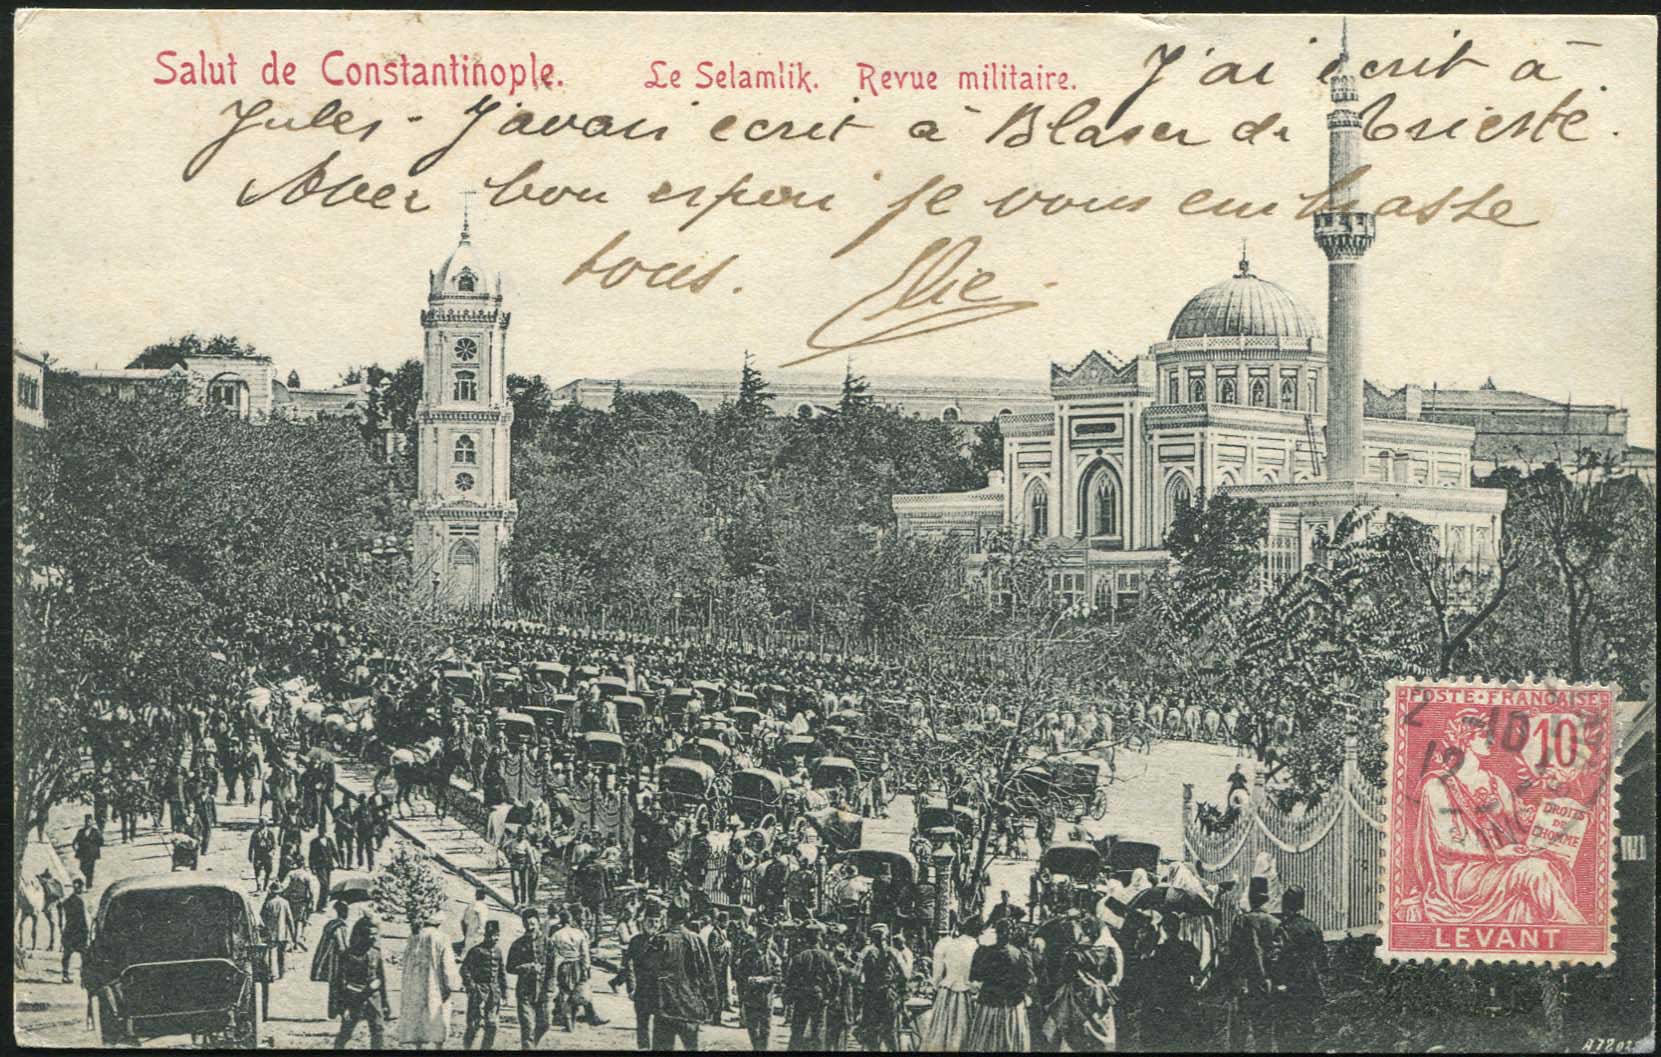 Salut de Constantinople. Le Selamlik. Revue militaire. J'ai écrit à
Jules - J'avais ecrit à Blaser de Trieste.
Avec bon espoir je vous embrasse
tous. Elie
POSTE · FRANÇAISE
10
DROITS
DE
L'HOMME
LEVANT